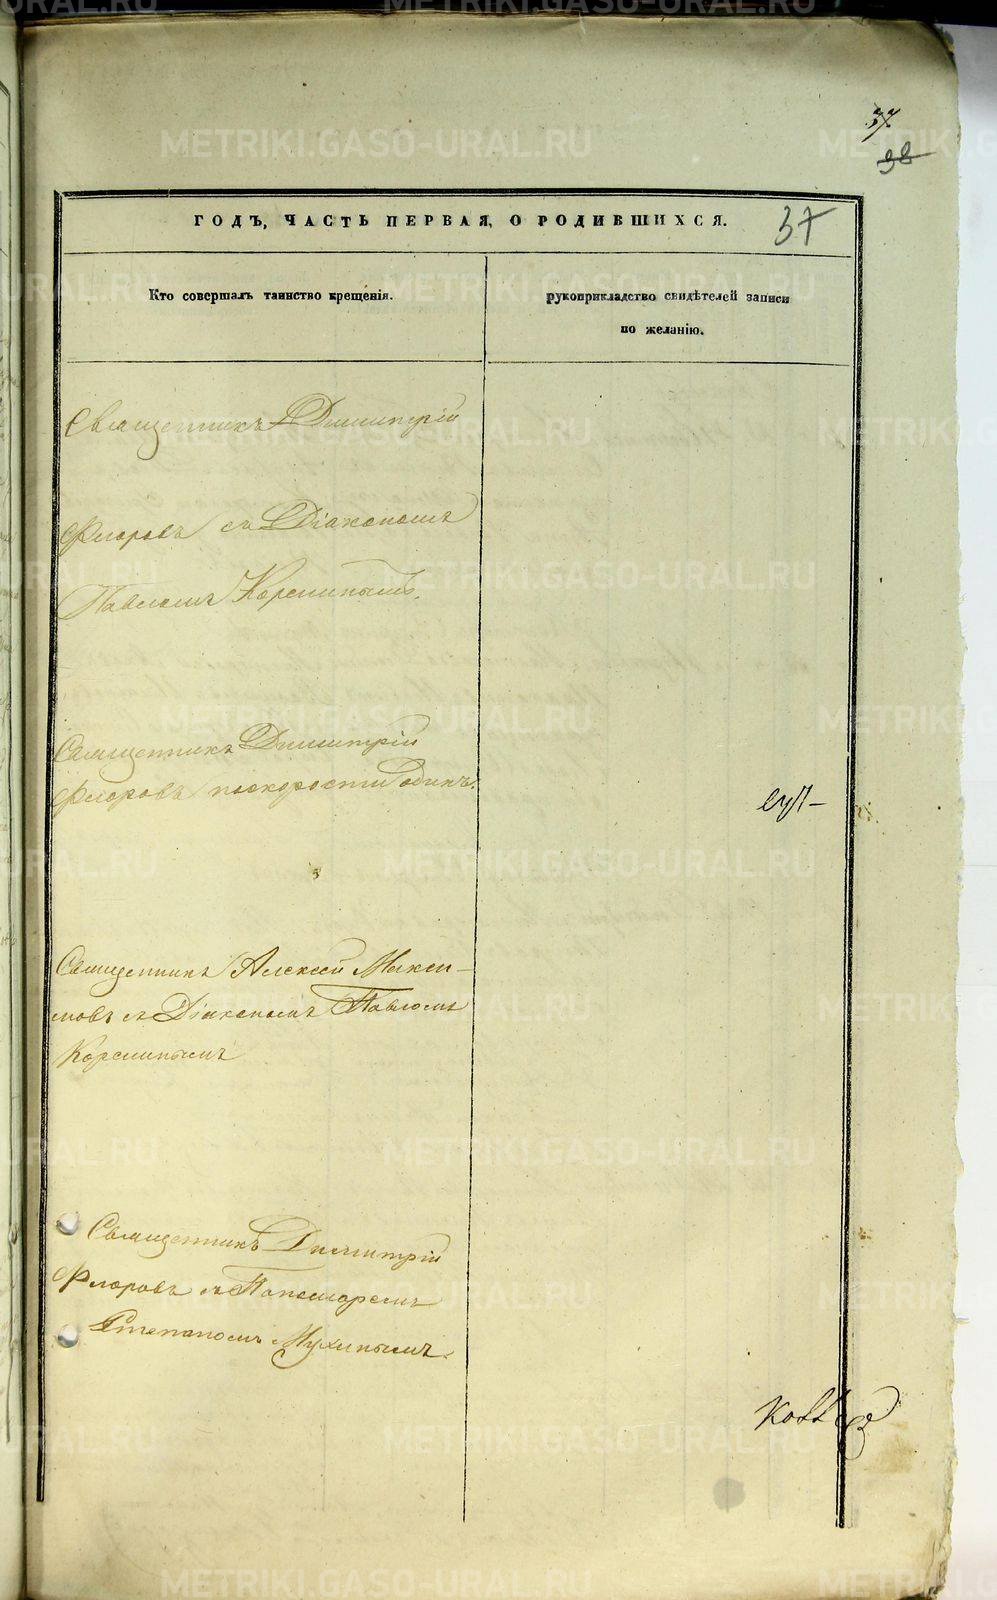 37.
38
37
ГОДЪ, ЧАСТЬ ПЕРВАЯ, О РОДИВШИХСЯ.
Кто совершалъ таинство крещенія.
рукоприкладство свидѣтелей записи
по желанію.
Священникъ Димитрій
Флоровъ съ Діакономъ
Павломъ Корелинымъ.
Священникъ Димитрій
Флоровъ по скорости Одинъ.
Священникъ Алексей Макси-
мовъ съ Діакономъ Павломъ
Корелинымъ
Священникъ Димитрій
Флоровъ съ Пономаремъ
Степаномъ Мухинымъ.
METRIKI.GASO-URAL.RU